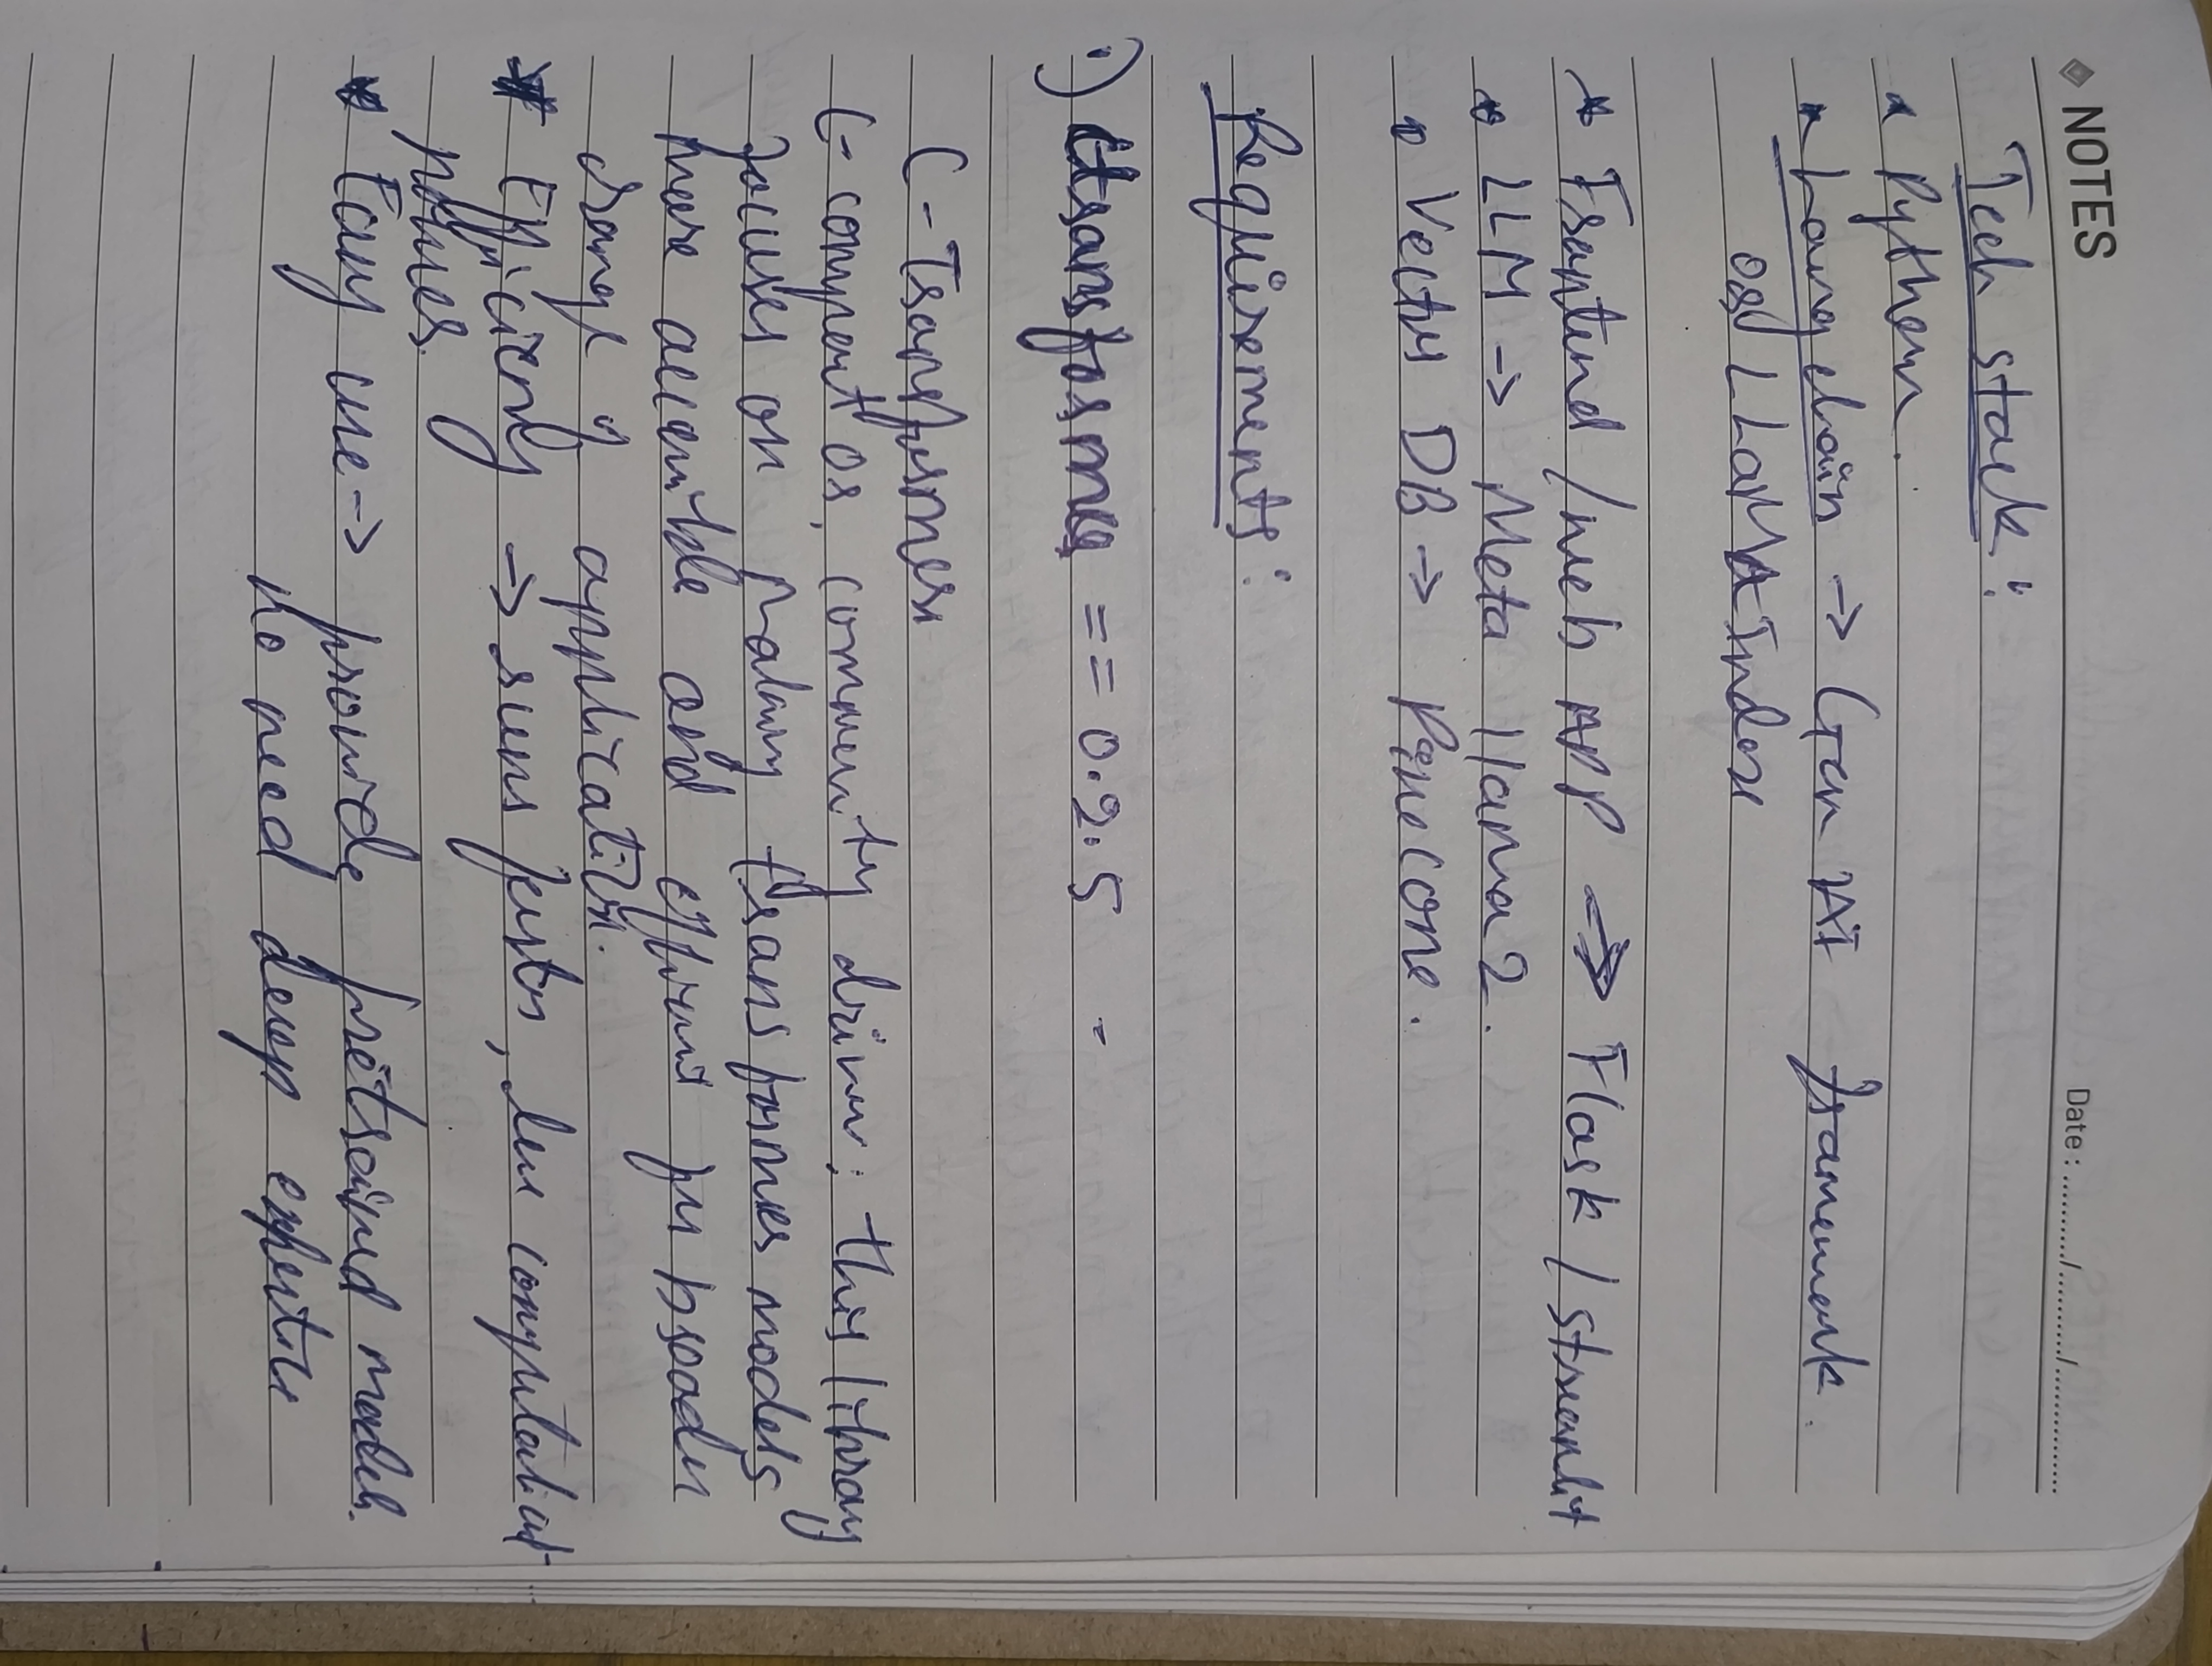 NOTES
Date: ......../......../............
Tech stack:
* Python.
* Langchain -> Gen AI framework.
or LLaMA Index
* Frontend / web APP => Flask / streamlit
* LLM -> Meta llama 2.
* Vector DB -> Pinecone.
Requirements:
i) ctransformers == 0.2.5 -
C-Transformers
C- component or, community driven; this library
focuses on making transformer models
more accessible and efficient for broader
range of application.
* Efficiency -> runs faster, less computational
power.
* Easy use -> provide pretrained model.
No need deep